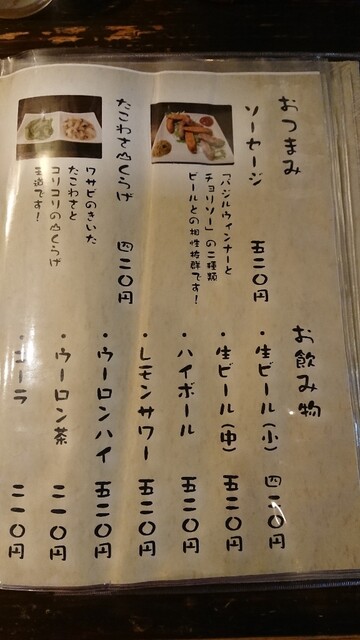 おつまみ
ソーセージ 五二〇円
「バジルウィンナーと
チョリソー」の二種類
ビールとの相性抜群です!
たこわさ 山くらげ 四二〇円
ワサビのきいた
たこわさと
コリコリの山くらげ
王道です!
お飲み物
・生ビール(小) 四二〇円
・生ビール(中) 五二〇円
・ハイボール 五二〇円
・レモンサワー 五二〇円
・ウーロンハイ 五二〇円
・ウーロン茶 二一〇円
・コーラ 二一〇円